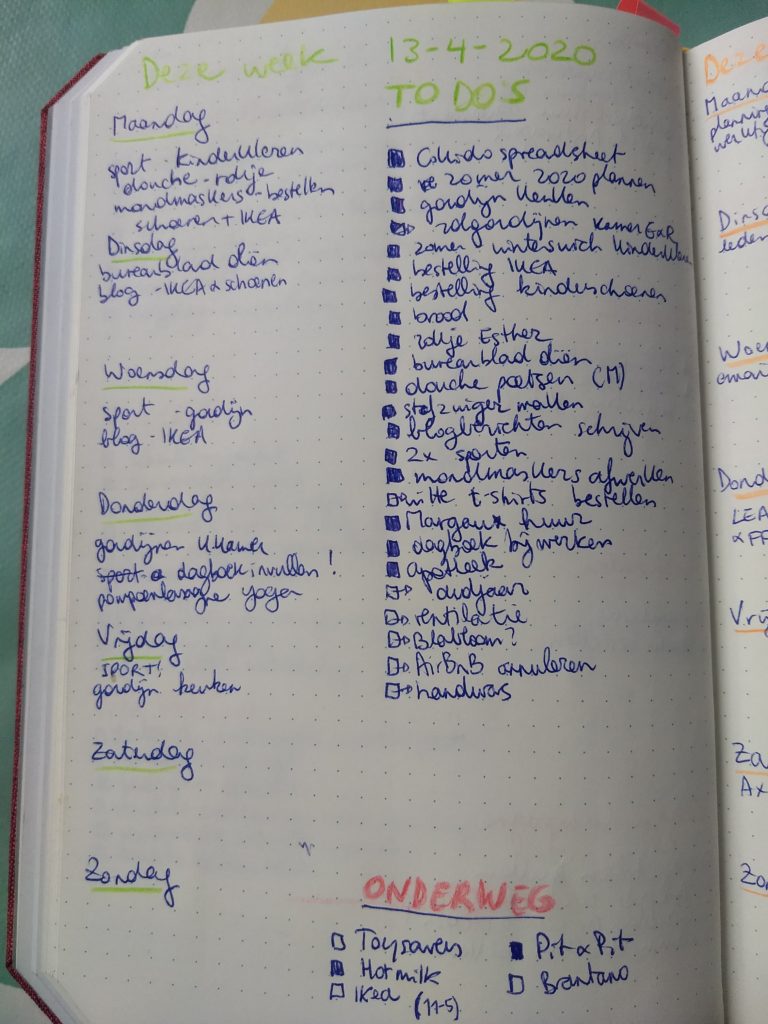 Deze week
13-4-2020
TO DOS
Maandag
sport - kinderkleren
douche - rokje
mondmaskers - bestellen
schoenen + IKEA
Dinsdag
bureaublad diën
blog - IKEA & schoenen
Woensdag
sport - gordijn
blog - IKEA
Donderdag
gordijnen kkamer
sport & dagboek invullen!
pompoenlasagne yoga
Vrijdag
SPORT!
gordijn keuken
Zaterdag
Zondag
spreadsheet
zomer 2020 plannen
gordijn keuken
rolgordijnen kamer
zomer winterswich kinderkleren
bestelling IKEA
bestelling kinderschoenen
brood
rokje Esther
bureaublad diën
douche poetsen (M)
stofzuiger mallen
blogberichten schrijven
2x sporten
mondmaskers afwerken
witte t-shirts bestellen
Margaux huur
dagboek bijwerken
apotheek
oudjaar
ventilatie
Blabloom?
AirBnB annuleren
handwas
ONDERWEG
Toysavers
Hotmilk
Ikea (11-5)
Pit & Pit
Brantano
Deze
Maand
planning
Dinsd
leden
Woen
email
Dond
LEA
Vrij
Za
Zo